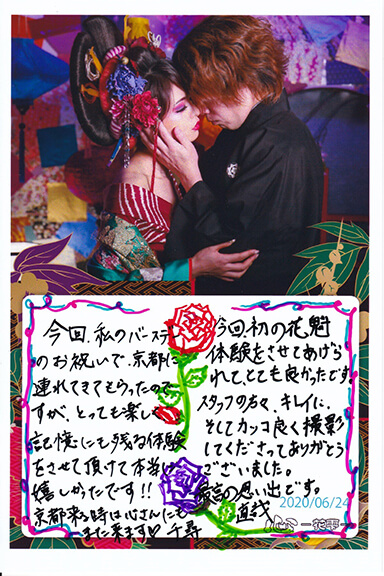 今回、私のバースデー
のお祝いで、京都に
連れてきてもらったので
すが、とっても楽しく
記憶にも残る体験
をさせて頂けて本当に
嬉しかったです!!
京都来る時は心さんにも
また来ます♡ 千尋
今回、初の花魁
体験をさせてあげら
れて、とても良かったです。
スタッフの方々、キレイに、
そしてカッコ良く撮影
してくださってありがとう
ございました。
最高の思い出です。
2020/06/24
心 -花雫-